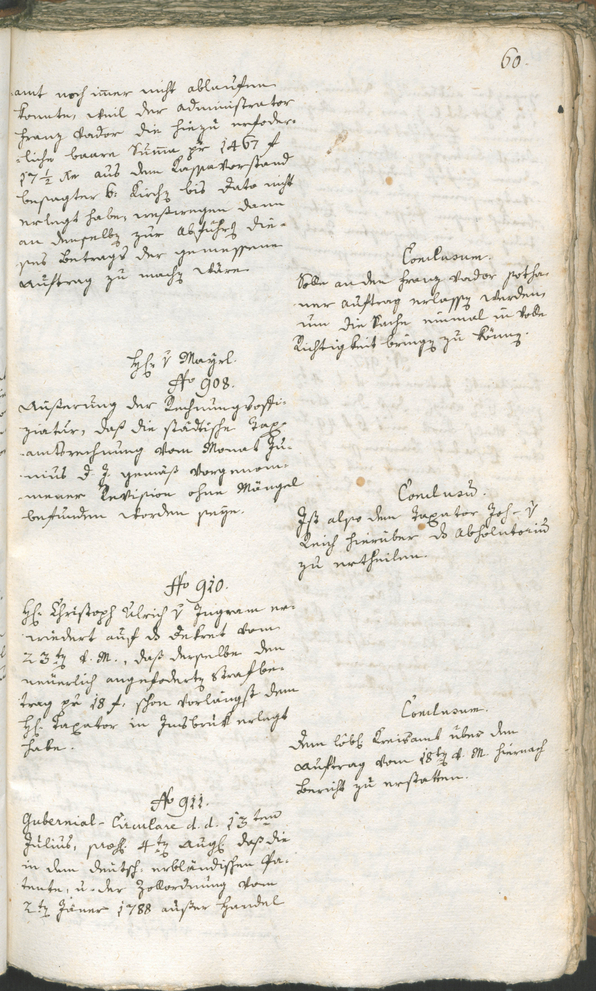 60.
amt noch immer nicht ablaufen
konnte, weil der administrator
Franz Vador die hiezu erforder-
liche baare Summa pr 1467 f
17 1/2 Kr aus dem Kassavorstand
besagter Kirch bis dato nicht
erlegt habe, weswegen dann
an denselben zur Abfuhr die-
ses Betrags der gemessene
Auftrag zu machen wäre.
Conclusum.
Solle an den Franz Vador
ner Auftrag erlassen werden,
um die Sache einmal in volle
Richtigkeit bringen zu können.
H. v Mayrl.
No 908.
Äußerung der Rechnungsoffi-
ziatur, daß die städtische Tax-
amtsrechnung vom Monat Ju-
nius d. J. gemäß vorgenom-
mener Revision ohne Mängel
befunden worden seye.
Conclusum.
Ist also dem Taxator Joh. v
Reich hierüber das Absolutorium
zu ertheilen.
No 910.
H. Christoph Ulrich v Ingram er-
wiedert auf das Dekret vom
23ten d. M., daß derselbe den
neuerlich angeforderten Strafbe-
trag pr 18 f. schon vorlängst dem
H. Taxator in Insbruck erlegt
habe.
Conclusum.
Dem löbl. Kreisamt über den
Auftrag vom 18ten d. M. hiernach
Bericht zu erstatten.
No 911.
Gubernial-Circulare d. d. 13ten
Julius, 4ten Aug. daß die
in dem deutsch erbländischen Pa-
tente, u. der Zollordnung vom
2ten Jäner 1788 außer Handel